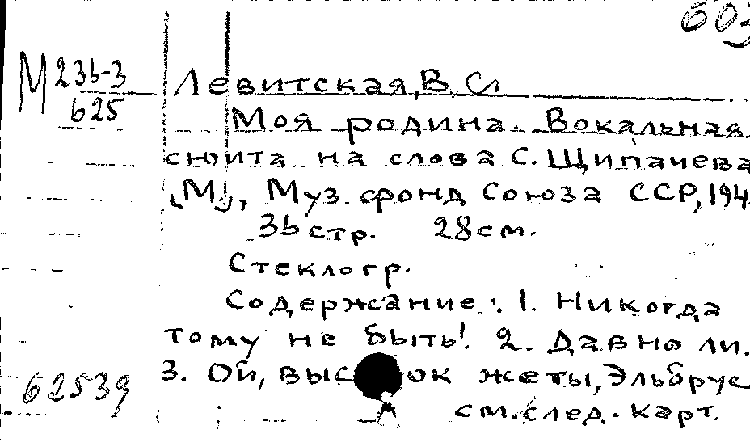 603
М 23б-3 Левитская, В. С.
625
Моя родина. Вокальная
сюита на слова С. Щипачева
[М], Муз. фонд Союза ССР, 194
36 стр. 28 см.
Стеклогр.
Содержание: 1. Никогда
тому не быть! 2. Давно ли.
3. Ой, высок же ты, Эльбрус
62539
см. след. карт.